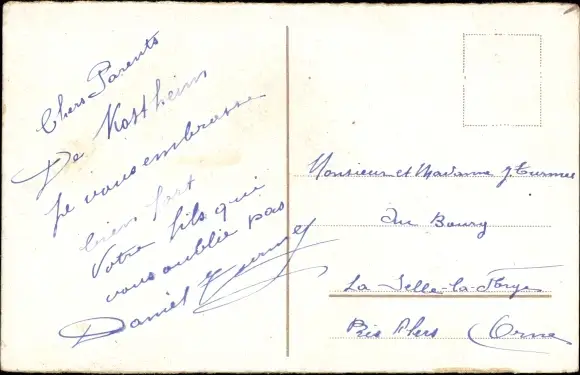 Chers Parents
De Kostheim
Je vous embrasse
bien fort
Votre fils qui
vous oublie pas
Daniel
Monsieur et Madame J
Au Bourg
La Selle-la-Forge
Près Flers Orne